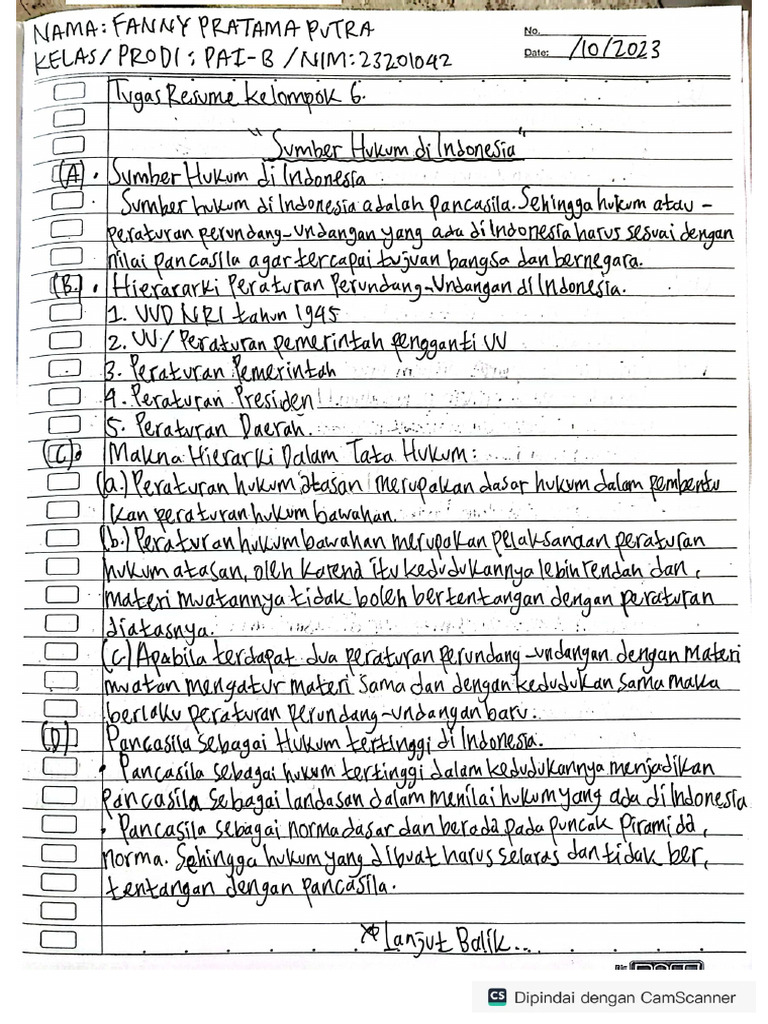 NAMA: FANNY PRATAMA PUTRA
KELAS/PRODI: PAI-B/NIM:23201042
No.
Date: /10/2023
Tugas Resume Kelompok 6.
"Sumber Hukum di Indonesia"
(A) • Sumber Hukum di Indonesia
Sumber hukum di Indonesia adalah pancasila. Sehingga hukum atau -
peraturan perundang-undangan yang ada di Indonesia harus sesuai dengan
nilai pancasila agar tercapai tujuan bangsa dan bernegara.
(B.) • Hierararki Peraturan Perundang-Undangan di Indonesia.
1. UUD NRI tahun 1945
2. UU/Peraturan pemerintah pengganti UU
3. Peraturan Pemerintah
4. Peraturan Presiden
5. Peraturan Daerah.
(C). Makna Hierarki Dalam Tata Hukum:
(a.) Peraturan hukum atasan merupakan dasar hukum dalam pembentu
kan peraturan hukum bawahan.
(b.) Peraturan hukum bawahan merupakan pelaksanaan peraturan
hukum atasan, oleh karena itu kedudukannya lebih rendah dan,
materi muatannya tidak boleh bertentangan dengan peraturan
diatasnya.
(c) Apabila terdapat dua peraturan perundang-undangan dengan Materi
muatan mengatur materi sama dan dengan kedudukan sama maka
berlaku peraturan perundang-undangan baru.
(D) Pancasila sebagai Hukum tertinggi di Indonesia.
• Pancasila sebagai hukum tertinggi dalam kedudukannya menjadikan
pancasila sebagai landasan dalam menilai hukum yang ada di Indonesia
• Pancasila sebagai norma dasar dan berada pada puncak piramida,
norma. Sehingga hukum yang dibuat harus selaras dan tidak ber,
tentangan dengan pancasila.
* Lanjut Balik...
CS Dipindai dengan CamScanner